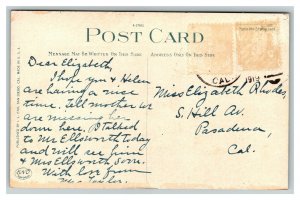 POST CARD
MESSAGE MAY BE WRITTEN ON THIS SIDE
ADDRESS ONLY ON THIS SIDE
Dear Elizabeth,
I hope you & Helen
are having a nice
time. Tell mother we
are missing her
down here. I talked
to Mr. Ellsworth today
and will see him
& Mrs Ellsworth soon.
With love from
CAL
1913
Miss Elizabeth Rhodes,
S. Hill Av.
Pasadena,
Cal.